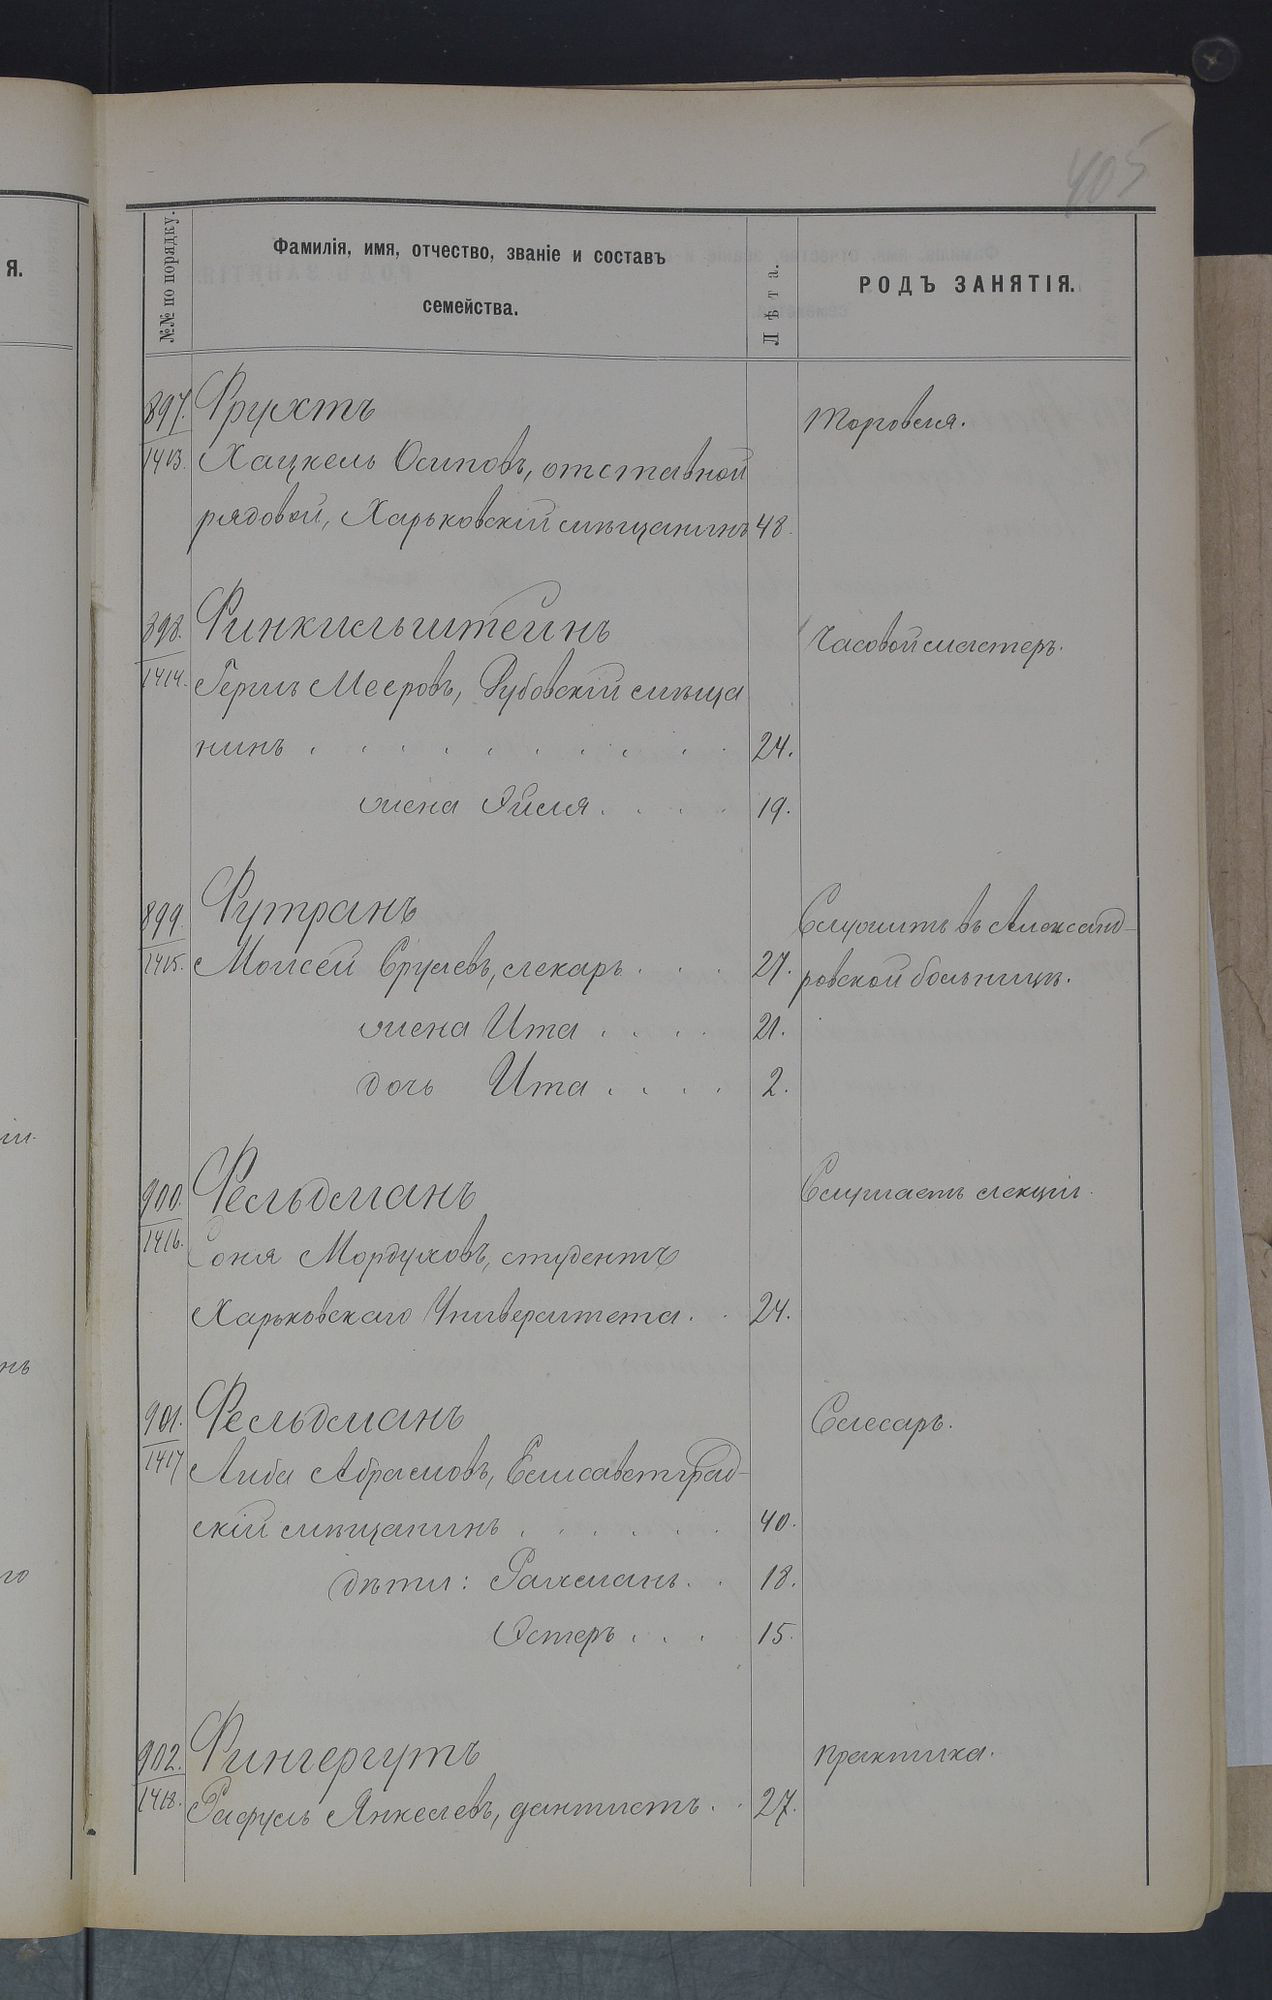 405
Я.
№№ по порядку.
Фамилія, имя, отчество, званіе и составъ
семейства.
Лѣта.
РОДЪ ЗАНЯТІЯ.
897. Фрухтъ
Торговля.
1413. Хацкель Осиповъ, отставной
рядовой, Харьковскій мѣщанинъ 48.
898. Финкильштейнъ
Часовой мастеръ.
1414. Гершъ Мееровъ, Дубовскій мѣща
нинъ . . . . . . . . . . 24.
жена Эйля . . . . 19.
899. Футранъ
Служитъ въ Александ-
1415. Моисей Сруревъ, лекарь . . . 27. ровской больницѣ.
жена Ита . . . . 21.
дочь Ита . . . . 2.
900. Фельдманъ
Слушаетъ лекціи.
1416. Соня Мордуховъ, студентъ
Харьковскаго Университета . . 24.
901. Фельдманъ
Слесарь.
1417 Либа Абрамовъ, Елисаветград-
скій мѣщанинъ . . . . . . 40.
дѣти: Рахманъ . . 18.
Эстеръ . . . 15.
902. Фингергутъ
практика.
1418. Рафуль Янкелевъ, дантистъ . . 27.